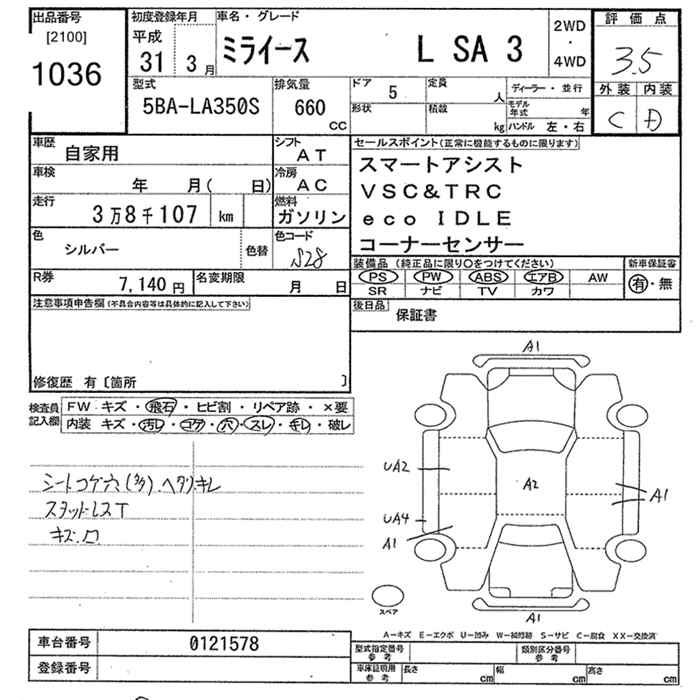 出品番号
[2100]
1036
初度登録年月
平成
31 3月
車名・グレード
ミライース L SA 3
2WD
・
4WD
評価点
3.5
外装 内装
C D
型式
5BA-LA350S
排気量
660
CC
ドア 5
定員 人
形状
積数 kg
ディーラー・並行
モデル年式 年
ハンドル 左・右
車歴
自家用
シフト
AT
車検
年 月( 日)
冷房
AC
走行
3万8千107 km
燃料
ガソリン
色
シルバー
色替
色コード
S28
R券
7,140円
名変期限
月 日
セールスポイント(正常に機能するものに限ります)
スマートアシスト
VSC&TRC
eco IDLE
コーナーセンサー
装備品 (純正品に限り〇をつけてください)
新車保証書
PS PW ABS エアB AW
SR ナビ TV カワ
有・無
後日品
保証書
注意事項申告欄(不具合内容等は具体的に記入して下さい)
修復歴 有〔箇所 〕
検査員
記入欄
FW キズ・飛石・ヒビ割・リペア跡・×要
内装 キズ・汚レ・コゲ・穴・スレ・キレ・破レ
シートコゲ穴(多).ヘタリ.キレ
スタッドレスT
キズ.口
A1
UA2
A2
A1
UA4
A1
A1
スペア
A−キズ E−エクボ U−凹み W−補修跡 S−サビ C−腐食 XX−交換済
車台番号
0121578
登録番号
型式指定番号
参考
類別区分番号
参考
車庫証明用
参考
長さ cm
幅 cm
高さ cm